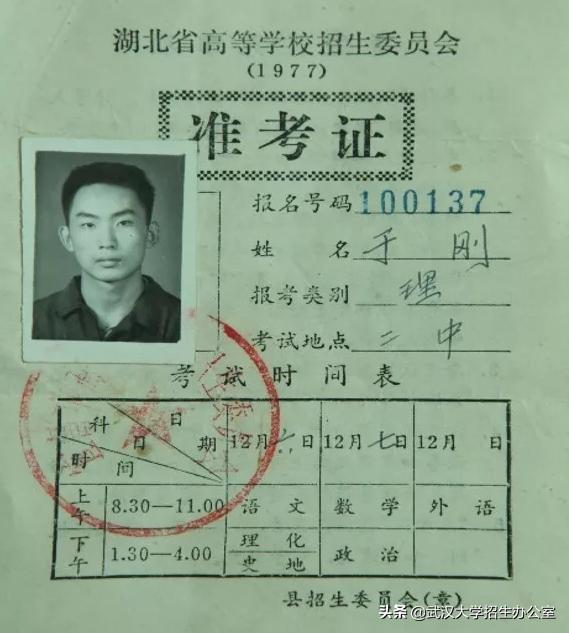 湖北省高等学校招生委员会
(1977)
准考证
报名号码 100137
姓 名 于 刚
报考类别 理
考试地点 二 中
考试时间表
科 目 日 期 时 间 12月六日 12月七日 12月 日
上午 8.30—11.00 语 文 数 学 外 语
下午 1.30—4.00 理 化 史 地 政 治
县招生委员会(章)
头条 @武汉大学招生办公室